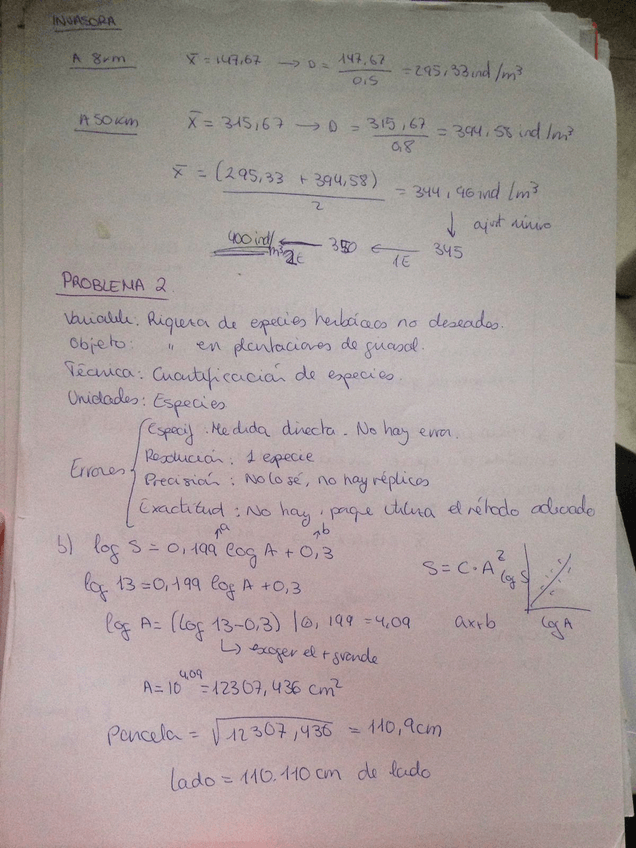 INVASORA
A 8km x̄ = 147,67 → D = 147,67 / 0,5 = 295,33 ind/m³
A 50 km x̄ = 315,67 → D = 315,67 / 0,8 = 394,58 ind/m³
x̄ = (295,33 + 394,58) / 2 = 344,96 ind/m³
↓ ajust
400 ind/m³ ← 2E 350 ← 1E 345
PROBLEMA 2
Variable: Riqueza de especies herbáceas no deseadas.
Objeto: " en plantaciones de guasal.
Técnica: Cuantificación de especies.
Unidades: Especies
Errores { Especif. Medida directa. No hay error.
Resolución: 1 especie
Precisión: No lo sé, no hay réplicas
Exactitud: No hay, porque utiliza el método adecuado
b) log S = 0,199 log A + 0,3
↗a ↗b
S = C·A^z
log S
log 13 = 0,199 log A + 0,3
log A = (log 13 - 0,3) / 0,199 = 4,09
ax+b
log A
↳ escoger el + grande
A = 10^4,09 = 12307,436 cm²
Parcela = √12307,436 = 110,9cm
lado = 110.110 cm de lado